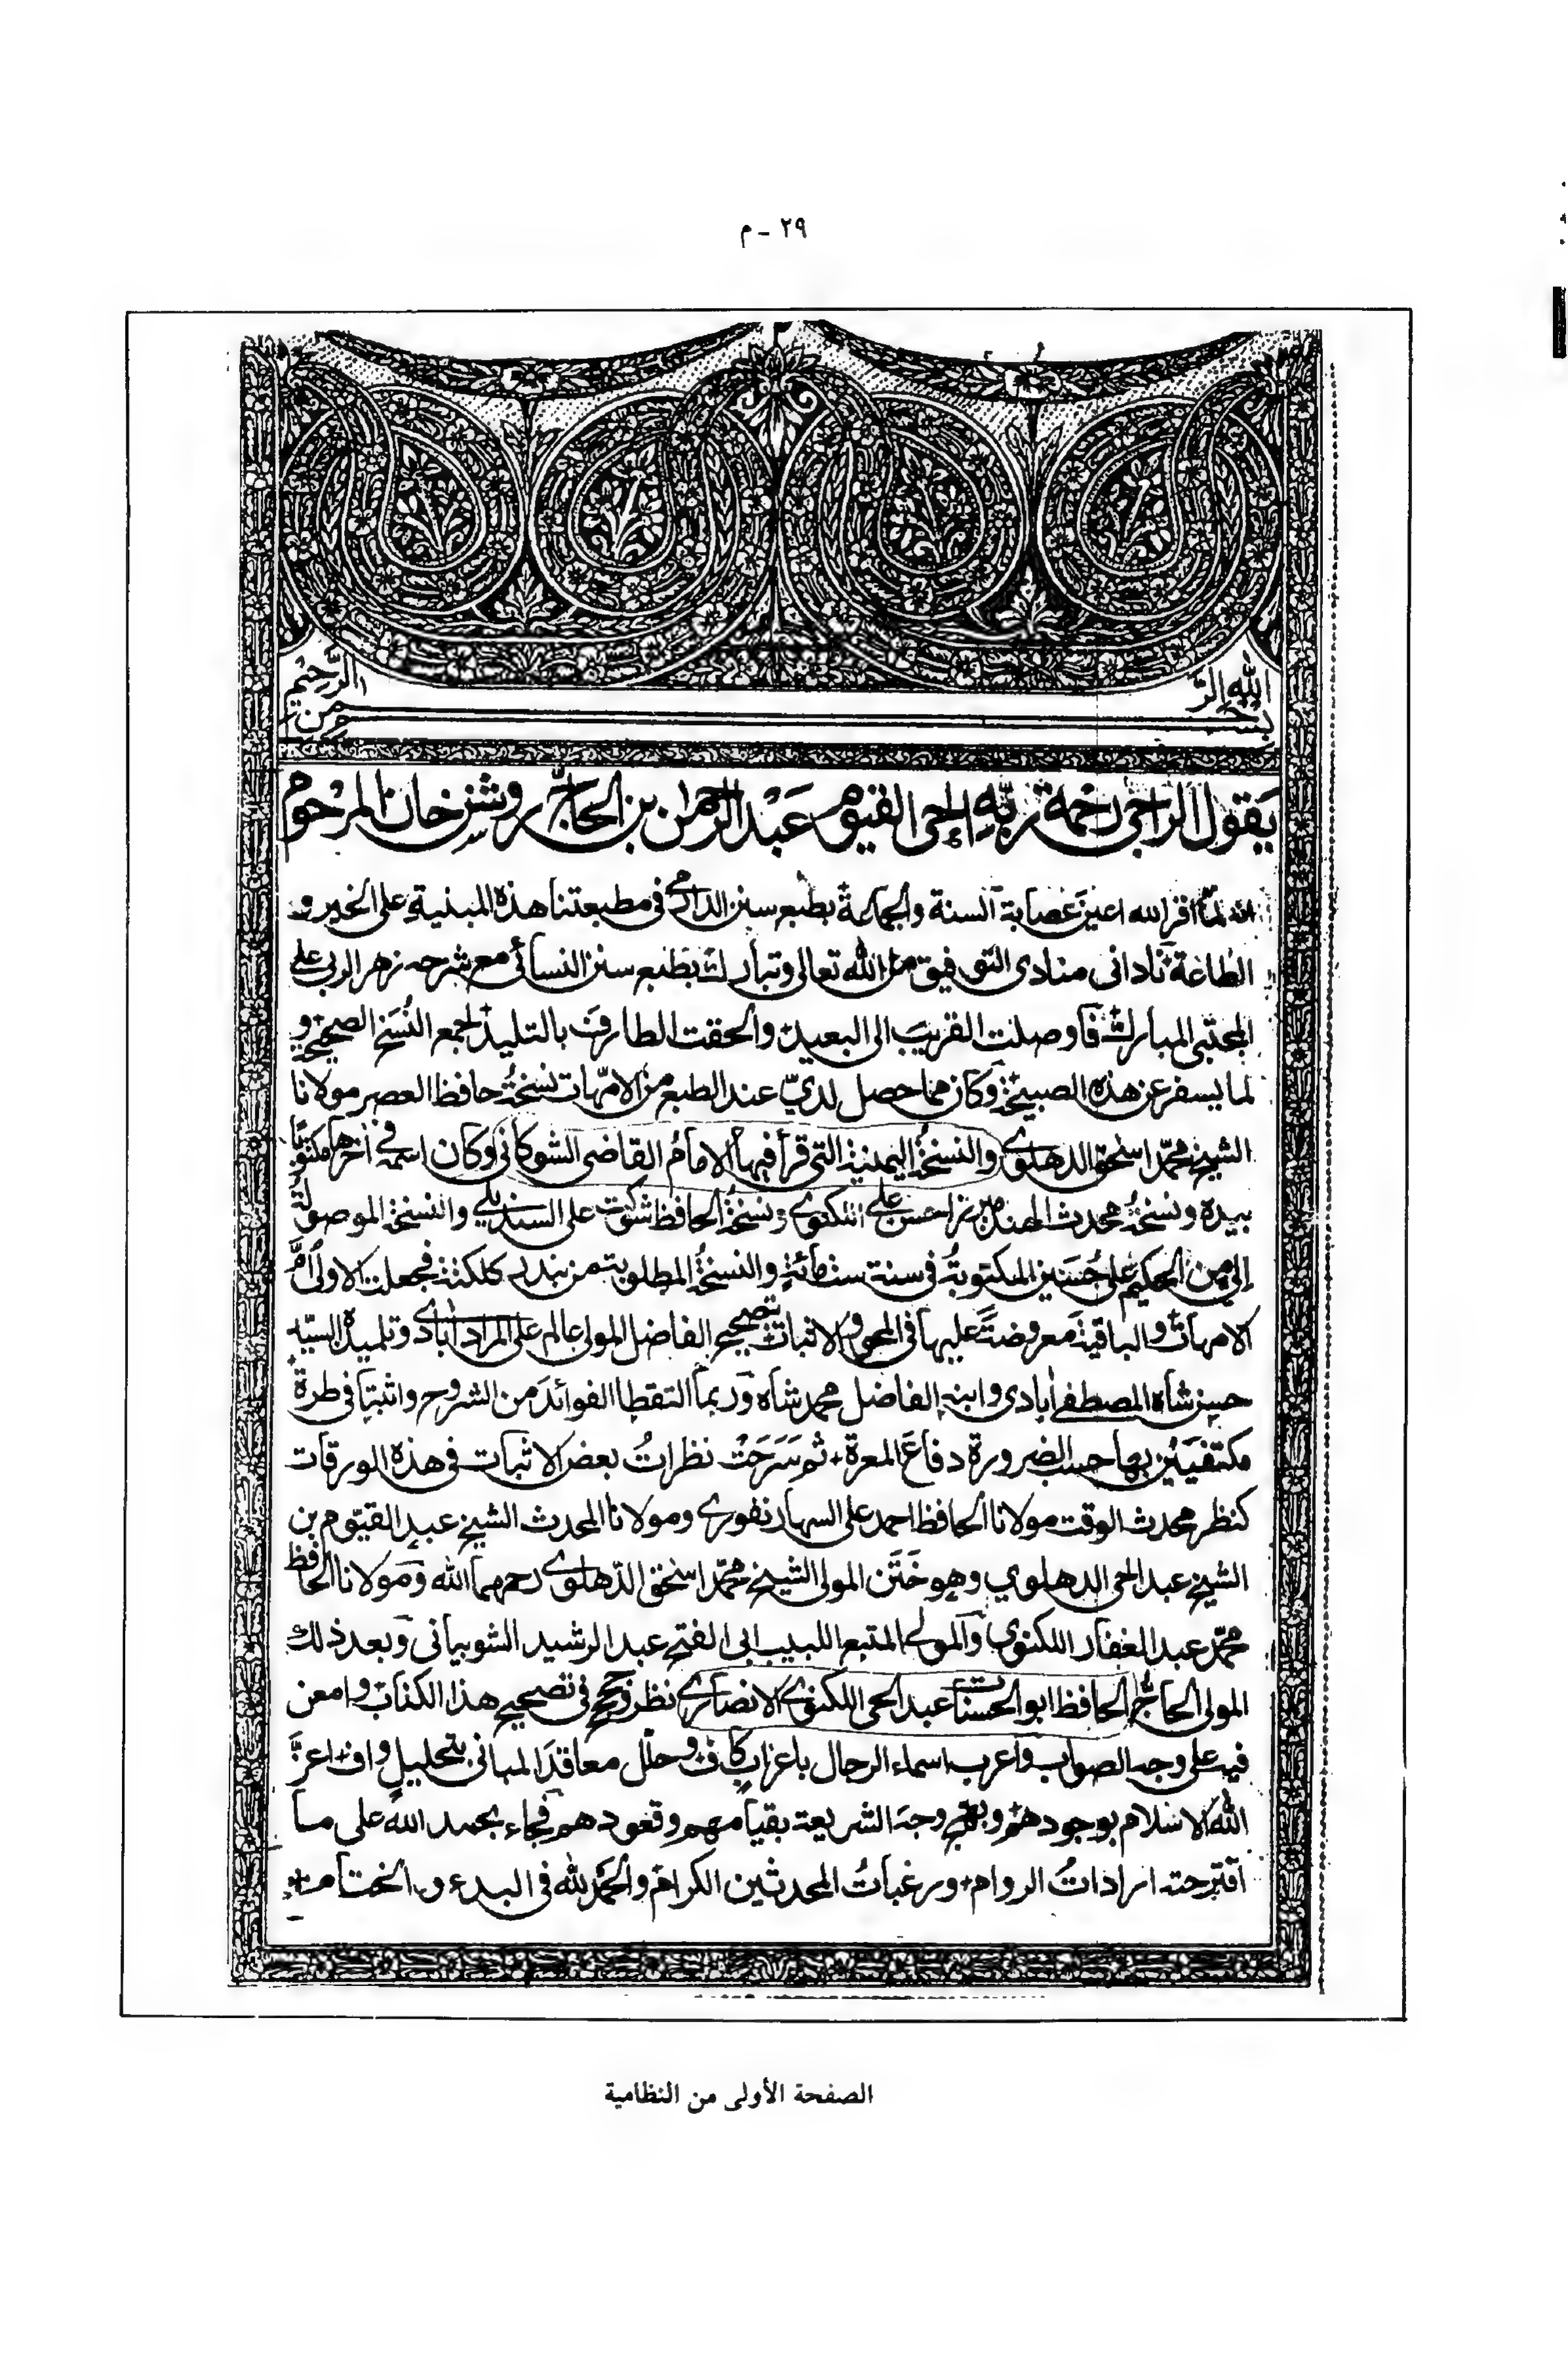 ٢٩ - م
بسم الله الرحمن الرحيم
يَقول الراجى رحمة ربّه الحى القيّوم عَبْد الرحمٰن بن الحاجّ روشن خان المرْحوم
انه لمّا اقر الله اعين عصابة السنة والجماعة بطبع سنن الدارمى فى مطبعتنا هذه المبنية على الخير و
الطاعة نادانى منادى التوفيق من الله تعالى وتبارك بطبع سنن النسائى مع شرحه زهر الربى على
المجتبى المبارك فاوصلت القريبَ الى البعيد والحقت الطارفَ بالتليد اجمع النُسَخ الصحيحة و
لما يسفر عن هذه الصبيحة وكان مما حصل لديّ عند الطبع من الامّهات نسخةُ حافظ العصر مولانا
الشيخ محمّد اسحٰق الدهلوى والنسخةُ اليمنية التى قرأ فيها الامامُ القاضى الشوكانى وكان اسمه فى اٰخرها مكتوبًا
بيده ونسخةُ محدث الهند ميرزا حسن على اللكنوى ونسخةُ الحافظ شوكت على السنديلى والنسخة الموصولة
إلى من الحكيم على حُسَين المكتوبةُ فى سنة ستمائة والنسخةُ المطلوبة من بندر كلكتة فجعلت الاولى اُمَّ
الامهات والباقيةَ معروضةً عليها فى المحو والاثبات بتصحيح الفاضل المولى عالم على المرادابادى وتلميذه السيد
حسين شاه المصطفےٰابادى وابنه الفاضل محمد شاه وربما التقطا الفوائدَ من الشروح واثبتا فى طرة
مكتفيَيْن بها حسب الضرورة دفاعَ المعرة ثم سَرَحَتْ نظراتُ بعض الاثبات فى هذه الورقات
كنظر محدث الوقت مولانا الحافظ احمد على السهارنفورى ومولانا المحدث الشيخ عبد القيّوم بن
الشيخ عبد الحى الدهلوي وهو خَتَن المولى الشيخ محمّد اسحٰق الدّهلوى رحمهما الله ومولانا الحافظ
محمّد عبد الغفار اللكنوى والمولى المتبع اللبيب ابى الفتح عبد الرشيد الشوبيانى وبعد ذلك
المولى الحاجّ الحافظ ابو الحسنات عبد الحى اللكنوى الانصارى نظر فى تصحيح هذا الكتاب وامعن
فيه على وجه الصواب واعرب اسماء الرجال باعرابٍ كافٍ وحلّل معاقدَ المبانى بتحليلٍ وافٍ اعزَّ
اللهُ الاسلام بوجودهم وجه الشريعة بقيامهم وقعودهم فجاء بحمد الله على ما
اقترحته ارادات الروام ورغباتُ المحدثين الكرام والحمد لله فى البدء والختام
الصفحة الأولى من النظامية